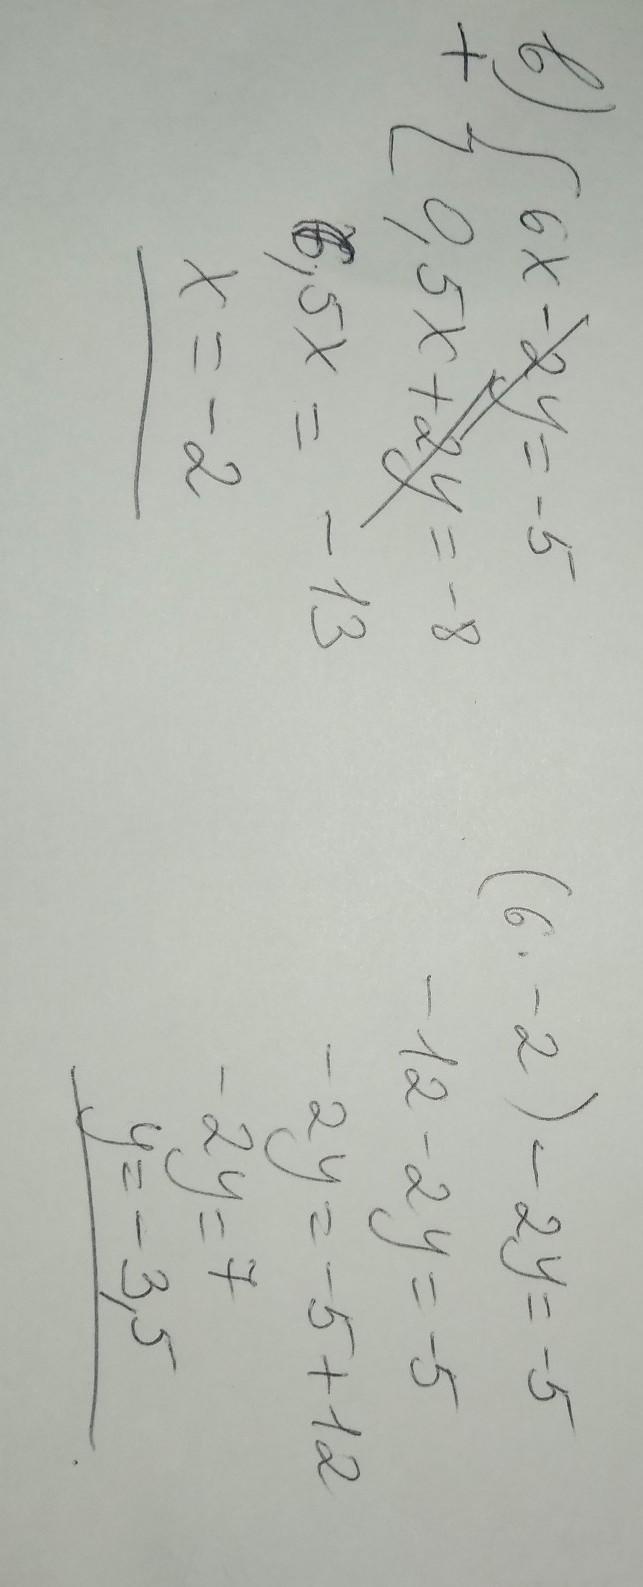 в) { 6x - 2y = -5
+ { 0,5x + 2y = -8
6,5x = -13
x = -2
(6 · -2) - 2y = -5
-12 - 2y = -5
-2y = -5 + 12
-2y = 7
y = -3,5